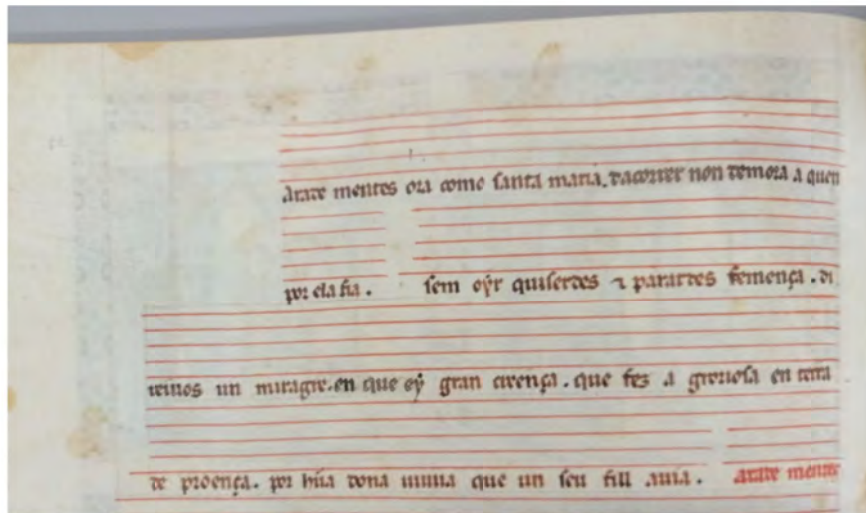 arade mentes ora como santa maria. dacorrer non demora a quen
por ela fia. sem oyr quiserdes ⁊ parardes femença. di
reivos un miragre. en que ey gran creença. que fez a groriosa en terra
de proença. por hũa dona uiuua que un seu fill auia. arade mentes